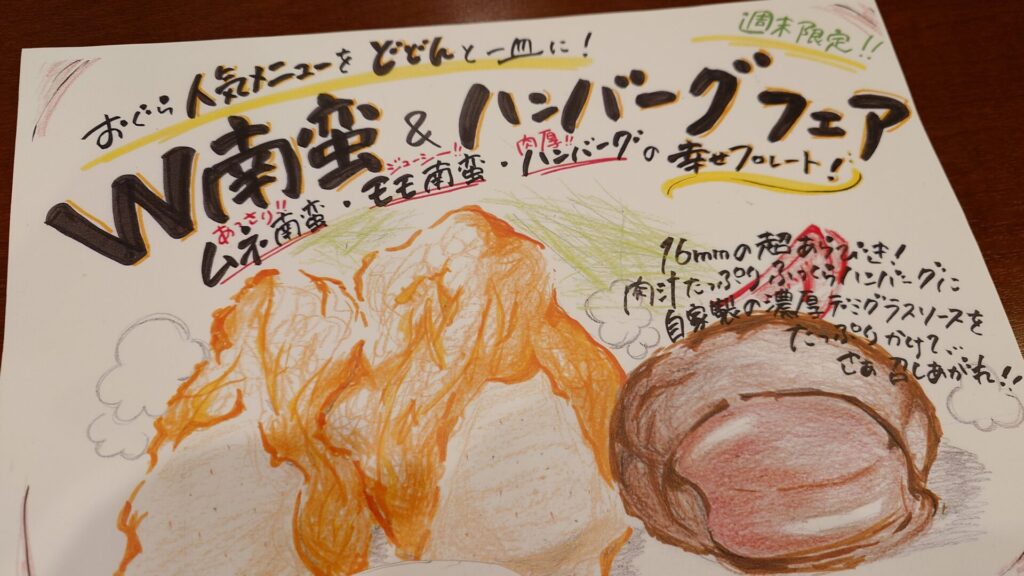 週末限定!!
おぐら 人気メニューを どどんと一皿に!
W南蛮&ハンバーグフェア
あっさり!! ジューシー!! 肉厚!!
ムネ南蛮・モモ南蛮・ハンバーグの幸せプレート!
16mmの超あらびき!
肉汁たっぷりふっくらハンバーグに
自家製の濃厚デミグラスソースを
たっぷりかけて、、
さあ召しあがれ!!